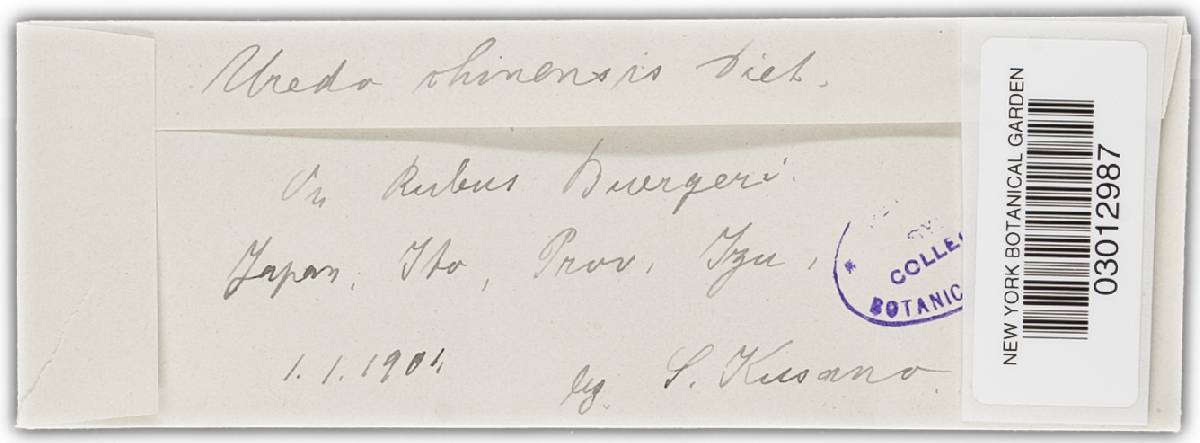 Uredo chinensis Diet.
On Rubus Buergeri
Japan, Ito, Prov. Izu,
1.1.1901
leg. S. Kusano
COLLE
BOTANIC
NEW YORK BOTANICAL GARDEN
03012987